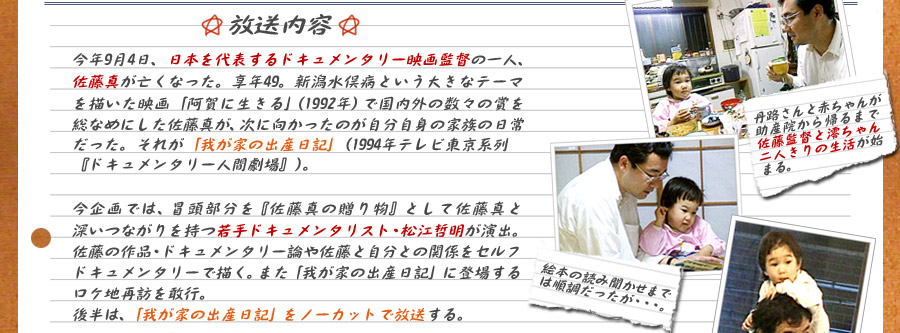 放送内容
今年9月4日、日本を代表するドキュメンタリー映画監督の一人、
佐藤真が亡くなった。享年49。新潟水俣病という大きなテーマ
を描いた映画「阿賀に生きる」(1992年)で国内外の数々の賞を
総なめにした佐藤真が、次に向かったのが自分自身の家族の日常
だった。それが「我が家の出産日記」(1994年テレビ東京系列
『ドキュメンタリー人間劇場』)。
今企画では、冒頭部分を『佐藤真の贈り物』として佐藤真と
深いつながりを持つ若手ドキュメンタリスト・松江哲明が演出。
佐藤の作品・ドキュメンタリー論や佐藤と自分との関係をセルフ
ドキュメンタリーで描く。また「我が家の出産日記」に登場する
ロケ地再訪を敢行。
後半は、「我が家の出産日記」をノーカットで放送する。
丹路さんと赤ちゃんが
助産院から帰るまで
佐藤監督と澪ちゃん
二人きりの生活が始
まる。
絵本の読み聞かせまで
は順調だったが・・・。